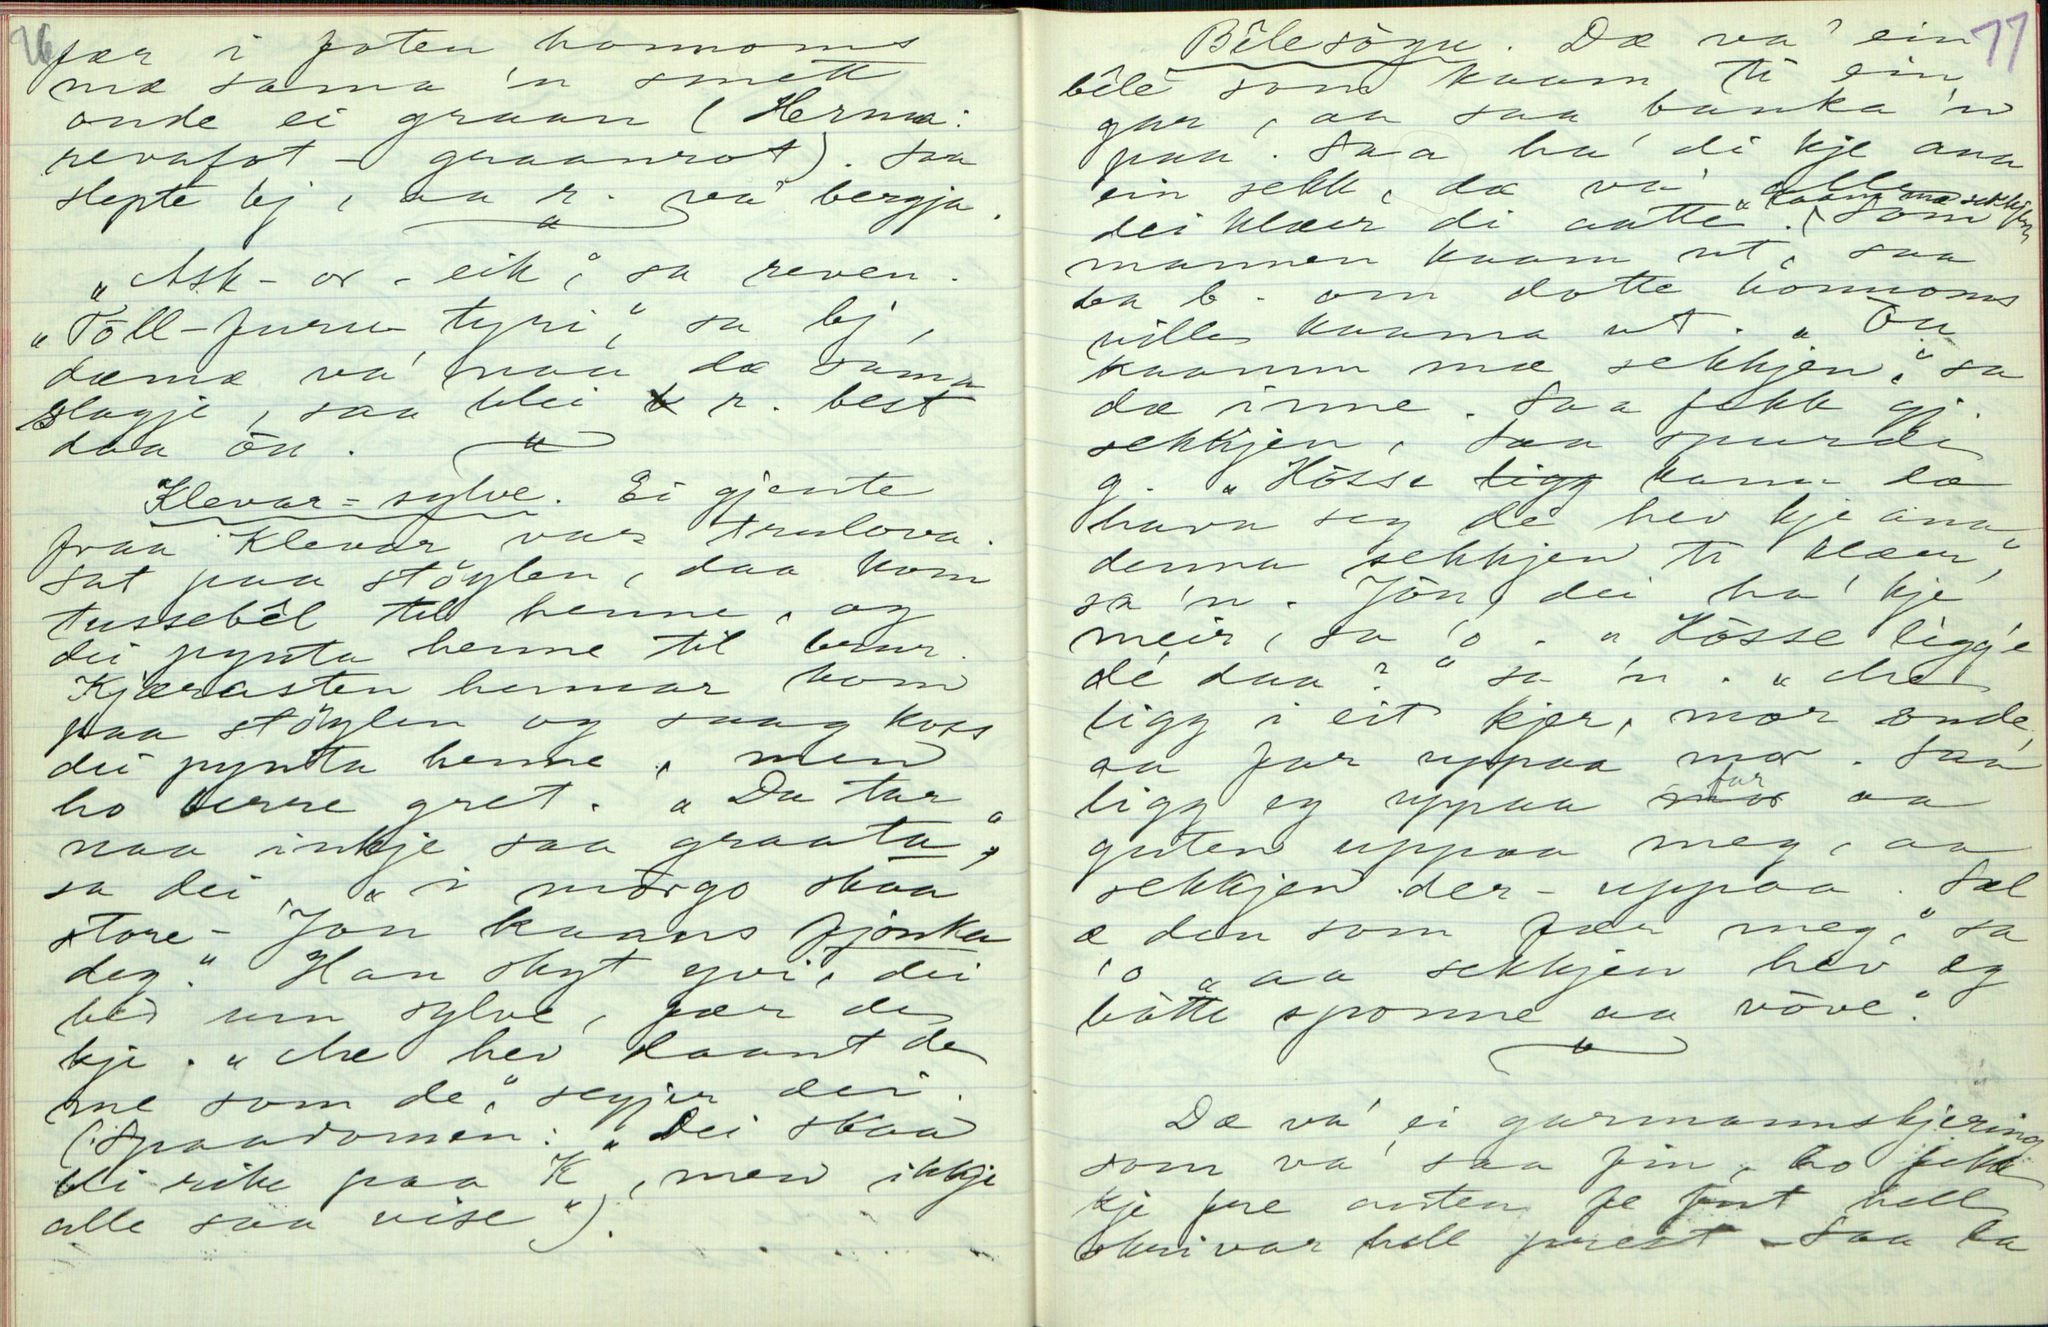 76
fær i foten honnoms
mæ sama 'n smett
onde ei graan (Herma:
revafot - graanrot). Saa
slepte bj, aa r. va' bergja.
"Ask - or - eik", sa reven.
"Töll - furu - tyri", sa bj,
dæmæ va' naa dæ sama
slagje, saa blei r. best
daa ôu.
Klevar=sylve. Ei gjente
fraa Klevar var trulova.
Sat paa stöylen, daa kom
tussebêl til henne, og
dei pynta henne til brur.
Kjærasten hennar kom
paa stöylen og saag koss
dei pynta henne, men
ho berre gret. "Du tar
naa inkje saa graata",
sa dei, "i môrgo skaa
store-Jon kaans fjonka
deg." Han skyt yvi, dei
bed um sylve, fær de
kje. "Me hev laant de
me som de", segjer dei.
(Spaadomen: "Dei skaa
bli rike paa K, men ikkje
alle saa vise").
77
Bêlesôgu. Dæ va' ein
bêlé som kaam ti ein
gar, aa saa banka 'n
paa. Saa ha' di kje ana
ein sekk, dæ va' alle
dei klær di aatte. Som
"kaam mæ sekkjen
mannen kaam ut, saa
ba b. om dotte hônnoms
ville kaama ut. "Ôu
kaamm mæ sekkjen", sa
dæ inne. Saa fekk gj.
sekkjen, saa spurde
g. "Hôsse kann dæ
hava seg dé hev kje ana
denna sekkjen ti klæer",
sa 'n. Jôu, dei ha' kje
meir, sa 'o. "Hôsse ligg'e
dé daa?" sa 'n. "Me
ligg i eit kjer, mor onde,
aa far uppaa mor. Saa
ligg eg uppaa far aa
guten uppaa meg, aa
sekkjen der-uppaa. Sæl
æ den som fær meg", sa
'o "aa sekkjen hev eg
bôtte sponne aa vôve".
Dæ va' ei garmannskjering
som va' saa fin, ho fekk
kje fre anten fe fut hell
skrivar hell prest - Saa la